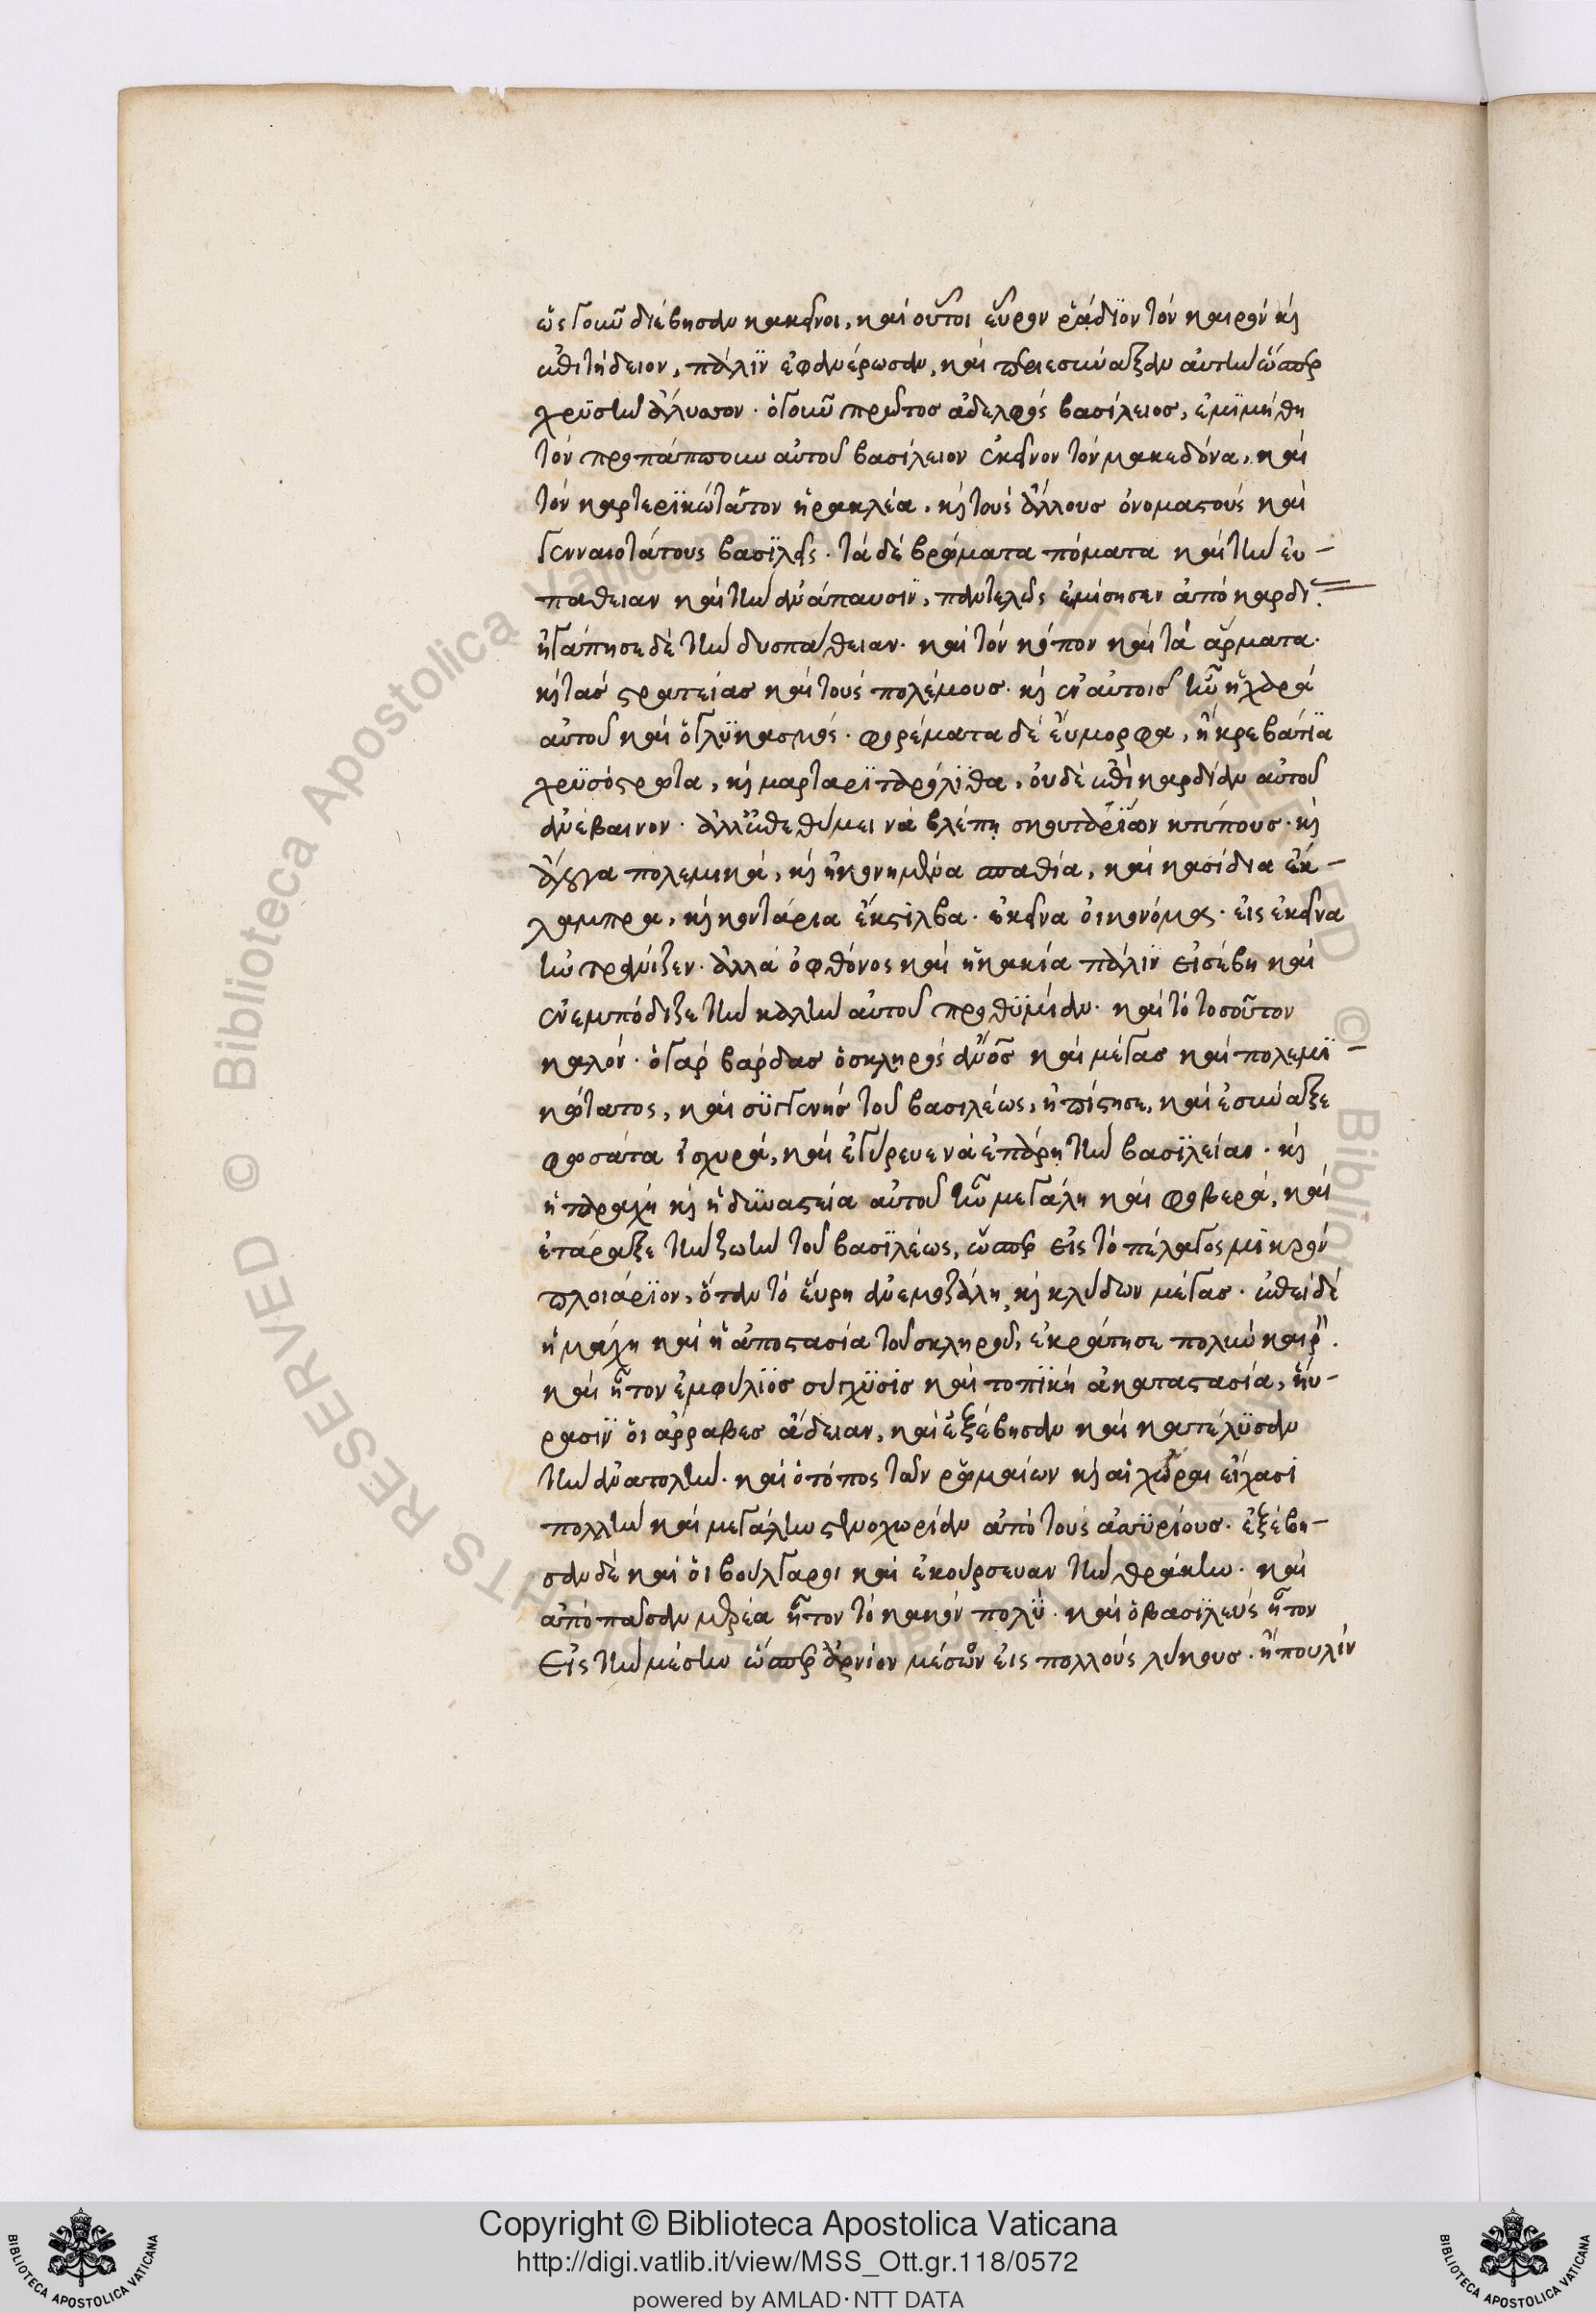 ὡς γοῦν διέβησαν κακεῖνοι, καὶ οὗτοι εὗρον ῥάδϊον τὸν καιρὸν καὶ
ἐπιτήδειον, πάλϊν ἐφανέρωσαν, καὶ περιεσύναξαν αὐτὴν ὥσπερ
χρϋσὴν ἄλυσον. ὁ γοῦν πρῶτος ἀδελφὸς βασίλειος, ἐμϊμήθη
τὸν προπάππουν αὐτοῦ βασίλειον ἐκεῖνον τὸν μακεδόνα, καὶ
τὸν καρτερϊκώτατον ἡρακλέα, καὶ τοὺς ἄλλους ὀνομαστοὺς καὶ
γενναιοτάτους βασϊλεῖς. τὰ δὲ βρώματα πόματα καὶ τὴν εὐ-
πάθειαν καὶ τὴν ἀνάπαυσϊν, παντελῶς ἐμίσησεν ἀπὸ καρδι
ἠγάπησε δὲ τὴν δυσπάθειαν. καὶ τὸν κόπον καὶ τὰ ἄρματα.
καὶ τὰς στρατείας καὶ τοὺς πολέμους. καὶ ἐν αὐτοῖς ἦν ἡ χαρὰ
αὐτοῦ καὶ ὁ γλϋκασμός. φορέματα δὲ εὔμορφα, ἢ κρεβατΐα
χρϋσόστρωτα, καὶ μαργαρϊταρόλϊθα, οὐδὲ ἐπὶ καρδίαν αὐτοῦ
ἀνέβαινον. ἀλλ' ἐπεθύμει νὰ βλέπη σκουταρΐων κτύπους. καὶ
ἄλογα πολεμικά, καὶ ἠκονημένα σπαθία, καὶ κασίδια ἔκ-
λαμπρα, καὶ κοντάρια ἔκστιλβα. ἐκεῖνα οἰκονόμας. εἰς ἐκεῖνα
ἐντρανίζεν. ἀλλὰ ὁ φθόνος καὶ ἡ κακία πάλϊν εἰσέβη καὶ
ἐνεμπόδιζε τὴν καλὴν αὐτοῦ προθϋμίαν. καὶ τὸ τοσοῦτον
καλόν. ὁ γὰρ βάρδας ὁ σκληρὸς ἀνὸς καὶ μέγας καὶ πολεμϊ-
κώτατος, καὶ σϋγγενὴς τοῦ βασιλέως, ἠπίστησε, καὶ ἐσύναξε
φοσάτα ἰσχυρά, καὶ ἐγύρευε νὰ ἐπάρη τὴν βασϊλείαν. καὶ
ἡ ταραχὴ καὶ ἡ δϋναστεία αὐτοῦ ἦν μεγάλη καὶ φοβερά, καὶ
ἐτάραξε τὴν ζωὴν τοῦ βασϊλέως, ὥσπερ εἰς τὸ πέλαγος μικρὸν
πλοιάρϊον, ὅταν τὸ εὕρη ἀνεμοζάλη, καὶ κλύδων μέγας. ἐπεὶ δὲ
ἡ μάχη καὶ ἡ ἀποστασία τοῦ σκληροῦ, ἐκράτησε πολὺν καιρ.
καὶ ἦτον ἐμφύλϊος σύγχϋσις καὶ τοπϊκὴ ἀκαταστασία, ηὕ-
ρασϊν οἱ ἄρραβες ἄδειαν, καὶ ἐξέβησαν καὶ κατέλϋσαν
τὴν ἀνατολήν. καὶ ὁ τόπος τῶν ρωμαίων καὶ αἱ χῶραι εἴχασι
πολλὴν καὶ μεγάλην στενοχωρίαν ἀπὸ τοὺς ἀσϋρίους. ἐξέβη-
σαν δὲ καὶ οἱ βούλγαροι καὶ ἐκούρσευαν τὴν θράκην. καὶ
ἀπὸ πᾶσαν μερέα ἦτον τὸ κακὸν πολϋ. καὶ ὁ βασϊλεὺς ἦτον
Εἰς τὴν μέσην ὥσπερ ἀρνίον μέσων εἰς πολλοὺς λύκους. ἢ πουλὶν
Copyright © Biblioteca Apostolica Vaticana
http://digi.vatlib.it/view/MSS_Ott.gr.118/0572
powered by AMLAD·NTT DATA